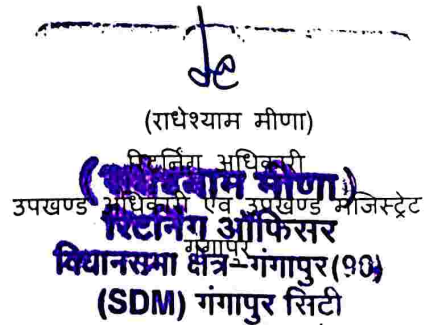 (राधेश्याम मीणा)
रिटर्निंग अधिकारी
(राधेश्याम मीणा)
उपखण्ड अधिकारी एवं उपखण्ड मजिस्ट्रेट
रिटर्निंग ऑफिसर
गंगापुर
विधानसभा क्षेत्र-गंगापुर(90)
(SDM) गंगापुर सिटी